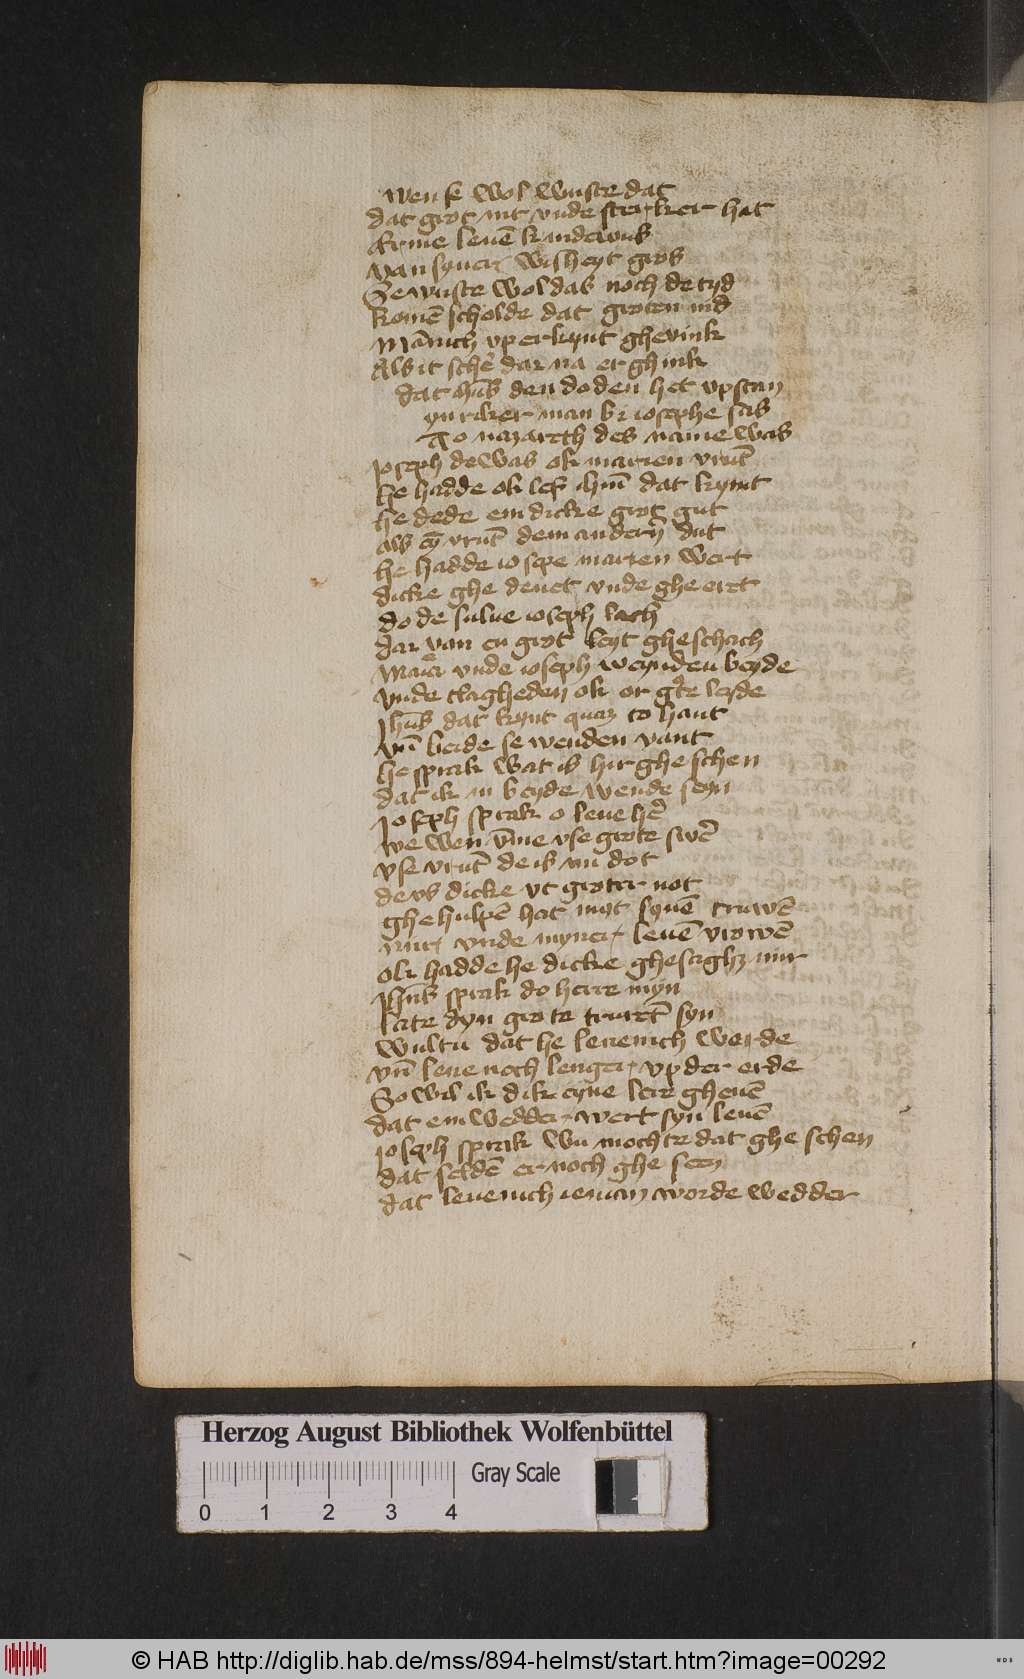 wen se wol wuste dat
dat grot nit vnde sterker hat
Erme leuē kinde wus
van syner wisheyt gros
Se wuste wol das noch de tyd
komē scholde dat groten nid
Mānich vp er kynt ghevink
Als it schē dar na er ghink
dat ihūs den doden het vp stan
yn riker man bi iosephe sas
To nazareth des name was
ioseph de was ok marien vrūt
he hadde ok lef ihm̄ dat kynt
he dede em dicke grot gut
als eȳ vrūt dem anderṅ dut
he hadde iosepe marien wert
dicke ghe deuet vnde ghe eret
do de sulue ioseph lach
dar van en grot leyt gheschach
Maria vnde ioseph weynden beyde
vnde clagheden ok or grͤte leyde
ihūs dat kynt quam to hant
vn̄ beide se wenden vant
he sprak wat is hir ghe schen
dat ik iu beyde wende seyn
Joseph sprak o leue hē
we wen v̄me vse grote swē
vse vrūt de is nu dot
de vs dicke vt groter not
ghe hulpē hat myt synē truwē
mir vnde myner leuē vrowē
ok hadde he dicke ghesaghz mir
Jhūs sprak do herre myn
late dyn grote trurēt syn
wultu dat he leuenich werde
vn̄ leue noch lenger vp der erde
So wil ik dik eyne lere gheuē
dat em wedder wert syn leuē
ioseph sprak wu mochte dat ghe schen
dat seldē er noch ghe seen
dat leuenich ieman worde wedder
Herzog August Bibliothek Wolfenbüttel
Gray Scale
0 1 2 3 4
© HAB http://diglib.hab.de/mss/894-helmst/start.htm?image=00292